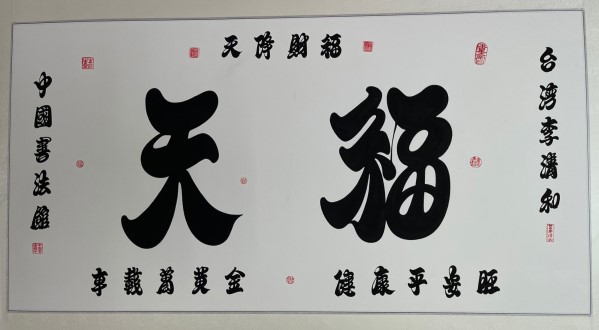 天降財福
台灣李清和
天福
中國書法館
事萬金
健康平安旺